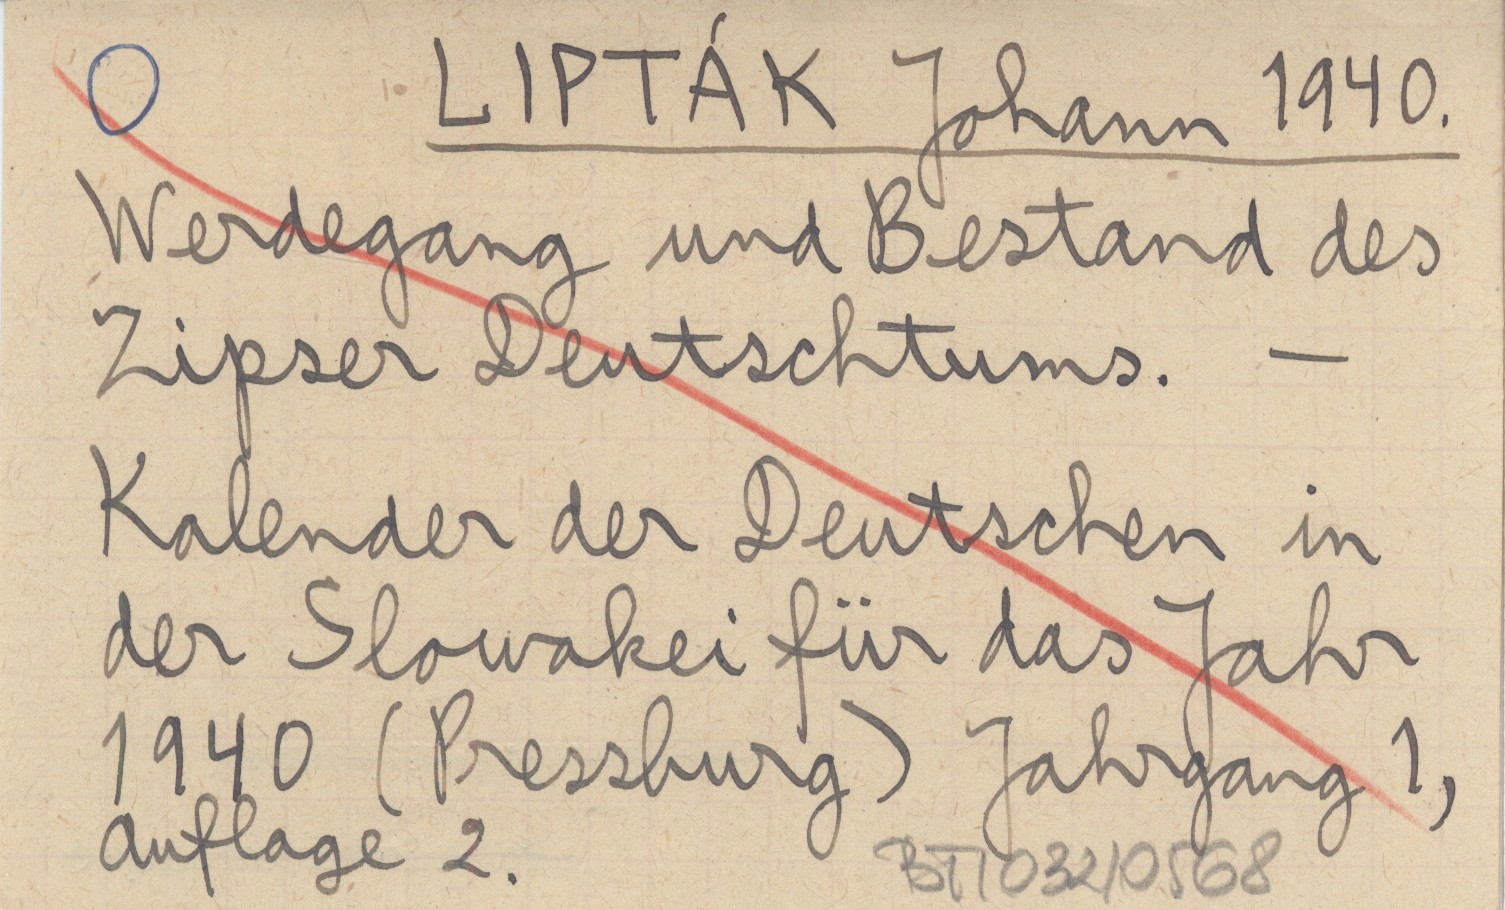 O LIPTÁK Johann 1940.
Werdegang und Bestand des
Zipser Deutschtums. —
Kalender der Deutschen in
der Slowakei für das Jahr
1940 (Pressburg) Jahrgang 1,
Auflage 2.
BTI032/0568